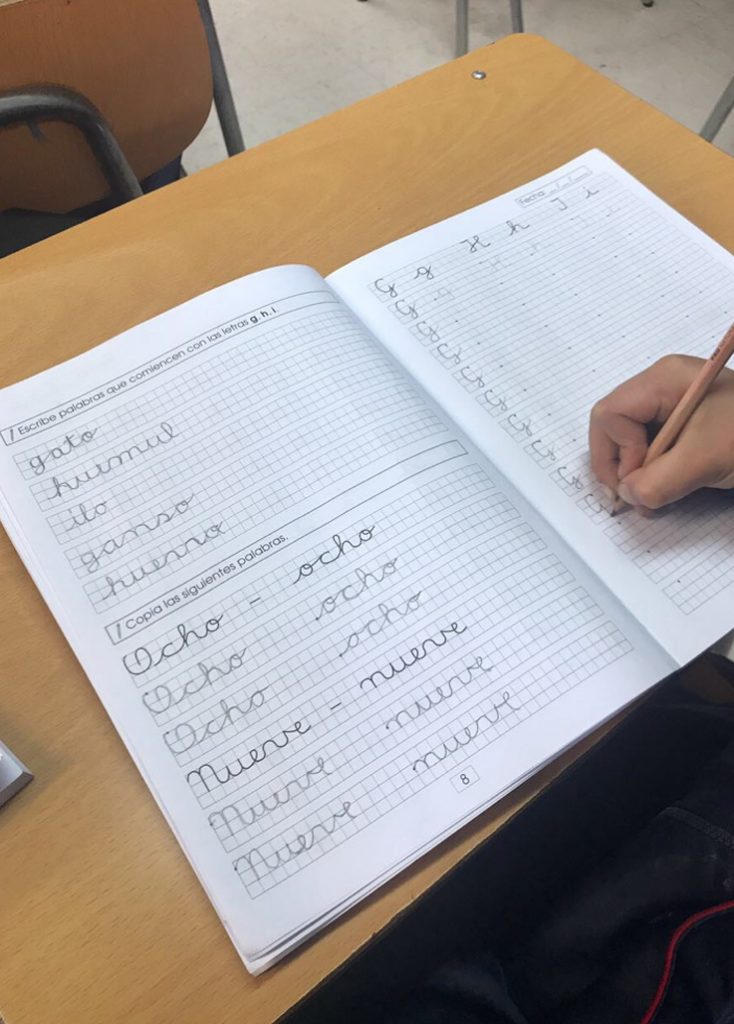 Escribe palabras que comiencen con las letras g, h, i.
gato
huimul
ilo
ganso
Copia las siguientes palabras.
Ocho - ocho
Ocho ocho
Ocho ocho
Nueve - nueve
Nueve nueve
Nueve nueve
8
Fecha: __/__/__
G g H h I i
G g H h I i
G
G
G
G
G
G
G
G